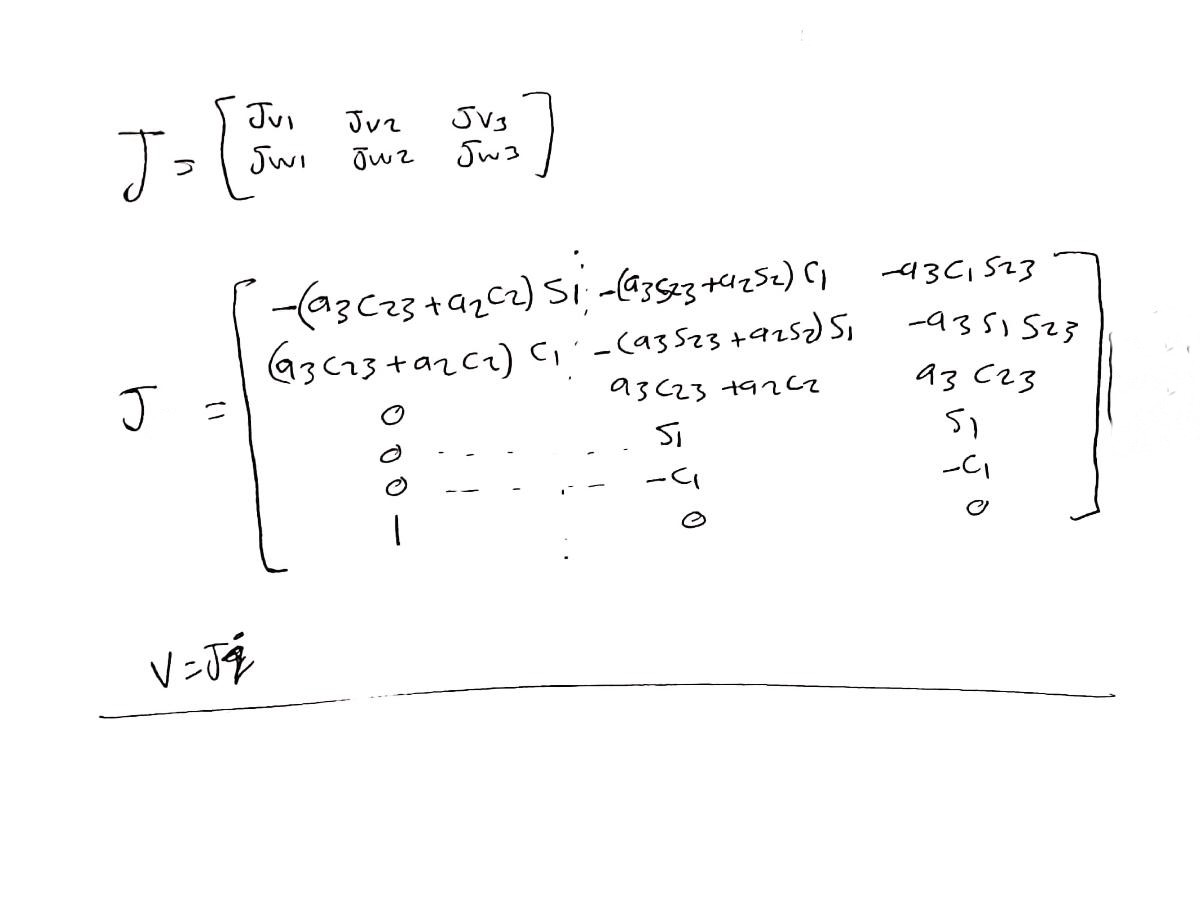 J = [ Jv1 Jv2 Jv3
Jw1 Jw2 Jw3 ]
J = [ -(a3c23+a2c2)S1 -(a3s23+a2s2)c1 -a3c1s23
(a3c23+a2c2)c1 -(a3s23+a2s2)s1 -a3s1s23
0 a3c23+a2c2 a3c23
0 s1 s1
0 -c1 -c1
1 0 0 ]
V=Jq̇